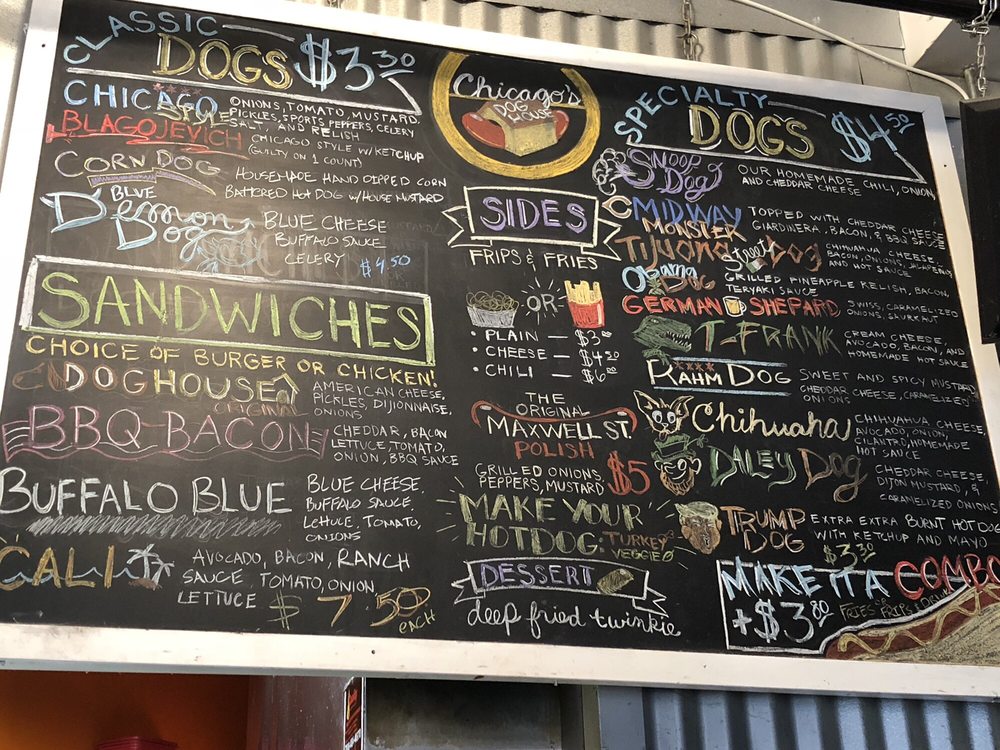 CLASSIC
DOGS $3.30
CHICAGO STYLE
ONIONS, TOMATO, MUSTARD,
PICKLES, SPORTS PEPPERS, CELERY
SALT, AND RELISH
BLAGOJEVICH
CHICAGO STYLE W/KETCHUP
(GUILTY ON 1 COUNT)
CORN DOG
HOUSEMADE HAND DIPPED CORN
BATTERED HOT DOG W/HOUSE MUSTARD
BLUE
Demon
Dog
BLUE CHEESE
BUFFALO SAUCE
CELERY
$4.50
SANDWICHES
CHOICE OF BURGER OR CHICKEN!
DOGHOUSE
ORIGINAL
AMERICAN CHEESE,
PICKLES, DIJIONNAISE,
ONIONS
BBQ-BACON
CHEDDAR, BACON
LETTUCE, TOMATO,
ONION, BBQ SAUCE
BUFFALO BLUE
BLUE CHEESE,
BUFFALO SAUCE,
LETTUCE, TOMATO,
ONIONS
CALI
AVOCADO, BACON, RANCH
SAUCE, TOMATO, ONION,
LETTUCE
$7.50
each
Chicago's
DOG
HOUSE
SIDES
FRIPS & FRIES
-OR-
• PLAIN — $3
• CHEESE — $4
• CHILI — $6
THE
ORIGINAL
MAXWELL ST.
POLISH
GRILLED ONIONS,
PEPPERS, MUSTARD
$5
MAKE YOUR
HOTDOG:
TURKEY
VEGGIE
DESSERT
deep fried twinkie
SPECIALTY
DOGS $4.50
SNOOP
DOG
OUR HOMEMADE CHILI, ONION,
AND CHEDDAR CHEESE
MIDWAY
MONSTER
TOPPED WITH CHEDDAR CHEESE
GIARDINERA, BACON, & BBQ SAUCE
Tijuana Street Dog
CHIHUAHUA CHEESE,
BACON, ONIONS, JALAPEÑO,
AND HOT SAUCE
Obama
DOG
GRILLED PINEAPPLE RELISH, BACON,
TERYAKI SAUCE
GERMAN SHEPARD
SWISS, CARAMELIZED
ONIONS, SAURKRAUT
T-FRANK
CREAM CHEESE,
AVOCADO, BACON, AND
HOMEMADE HOT SAUCE
RAHM DOG
SWEET AND SPICY MUSTARD,
CHEDDAR CHEESE, CARAMELIZED
ONIONS
Chihuaha
CHIHUAHUA CHEESE,
PICO, ONION,
CILANTRO, HOMEMADE
HOT SAUCE
DALEY DOG
CHEDDAR CHEESE
DIJON MUSTARD, &
CARAMELIZED ONIONS
TRUMP
DOG
EXTRA EXTRA BURNT HOT DOG
WITH KETCHUP AND MAYO
$3.30
MAKE IT A COMBO
+$3.80
FRIES OR FRIPS & DRINK